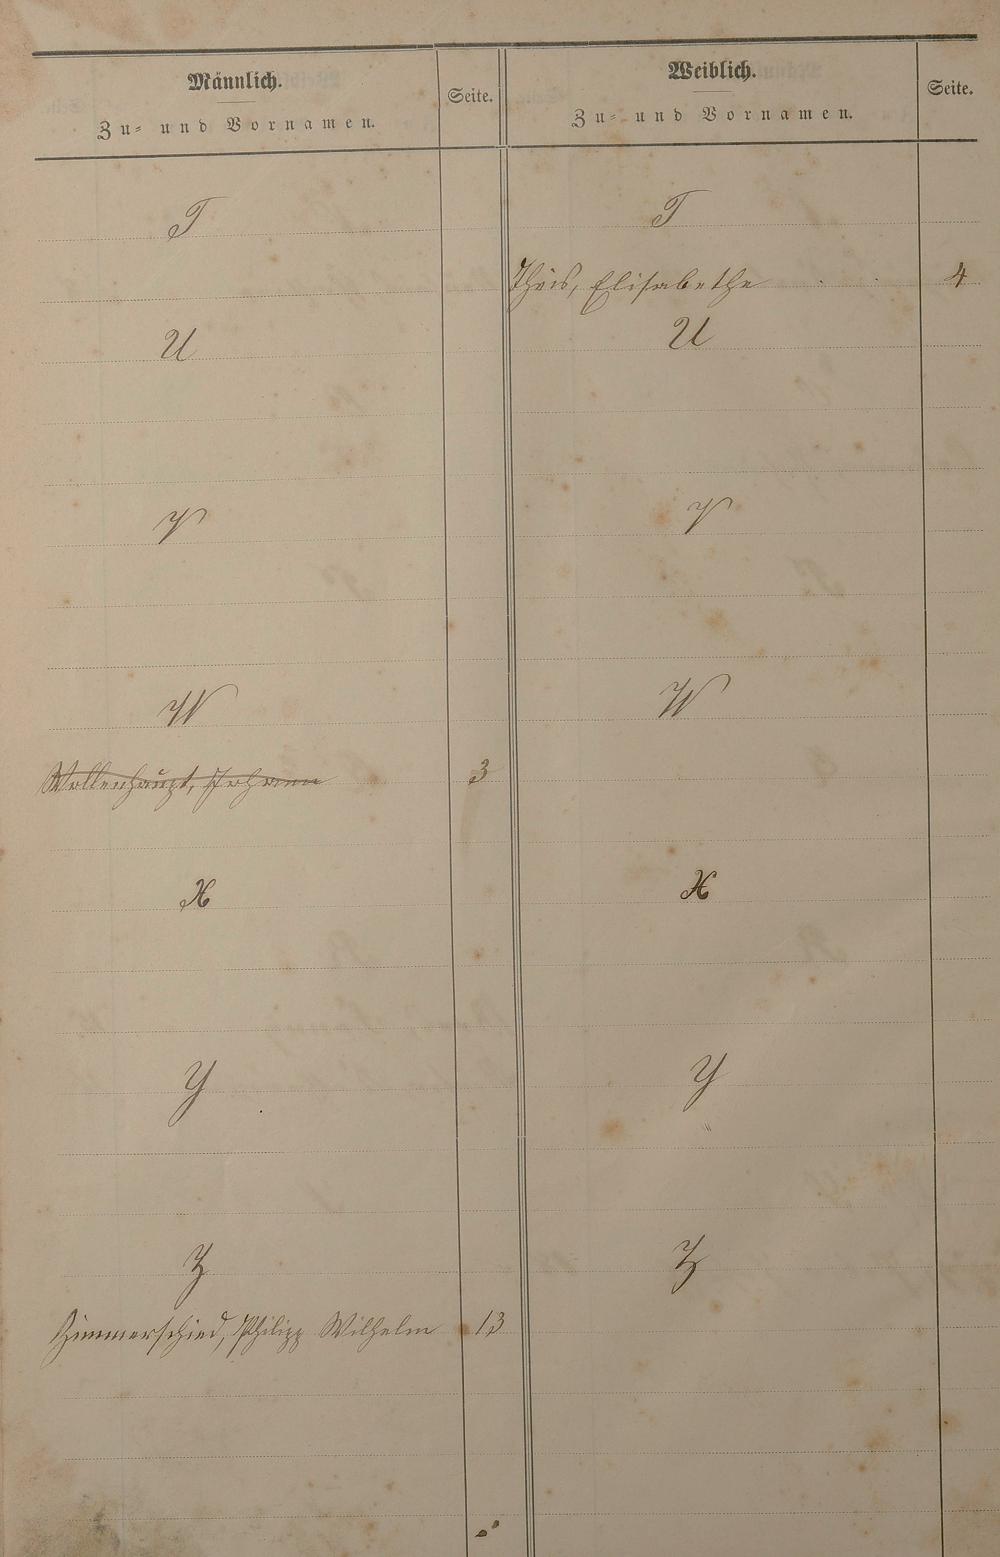 Männlich.
Zu- und Vornamen.
Seite.
Weiblich.
Zu- und Vornamen.
Seite.
T
T
Theis, Elisabethe 4
U
U
V
V
W
W
Wollenhaupt, Johann 3
X
X
Y
Y
Z
Z
Zimmerschied, Philipp Wilhelm 13